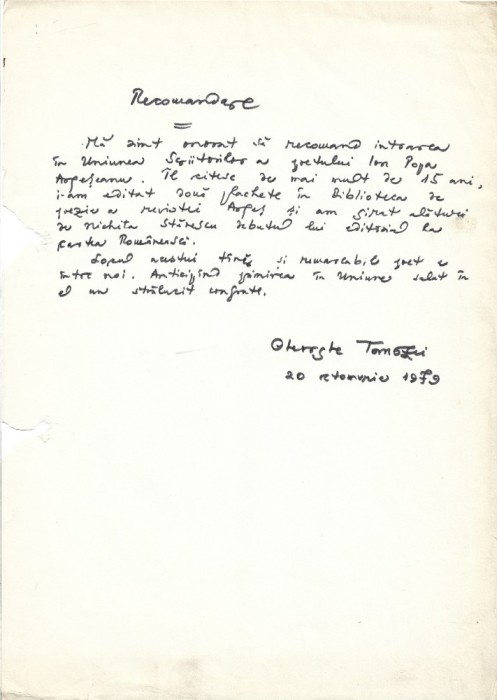 Recomandare
Mă simt onorat să recomand intrarea
în Uniunea Scriitorilor a poetului Ion Popa
Argeșeanu. Îl citesc de mai mult de 15 ani,
i-am editat două plachete în Biblioteca de
poezie a revistei Argeș și am girat alături
de Nichita Stănescu debutul lui editorial la
Cartea Românească.
Locul acestui tînăr și remarcabil poet e
între noi. Anticipînd primirea în Uniune salut în
el un strălucit confrate.
Gheorghe Tomozei
20 octombrie 1979